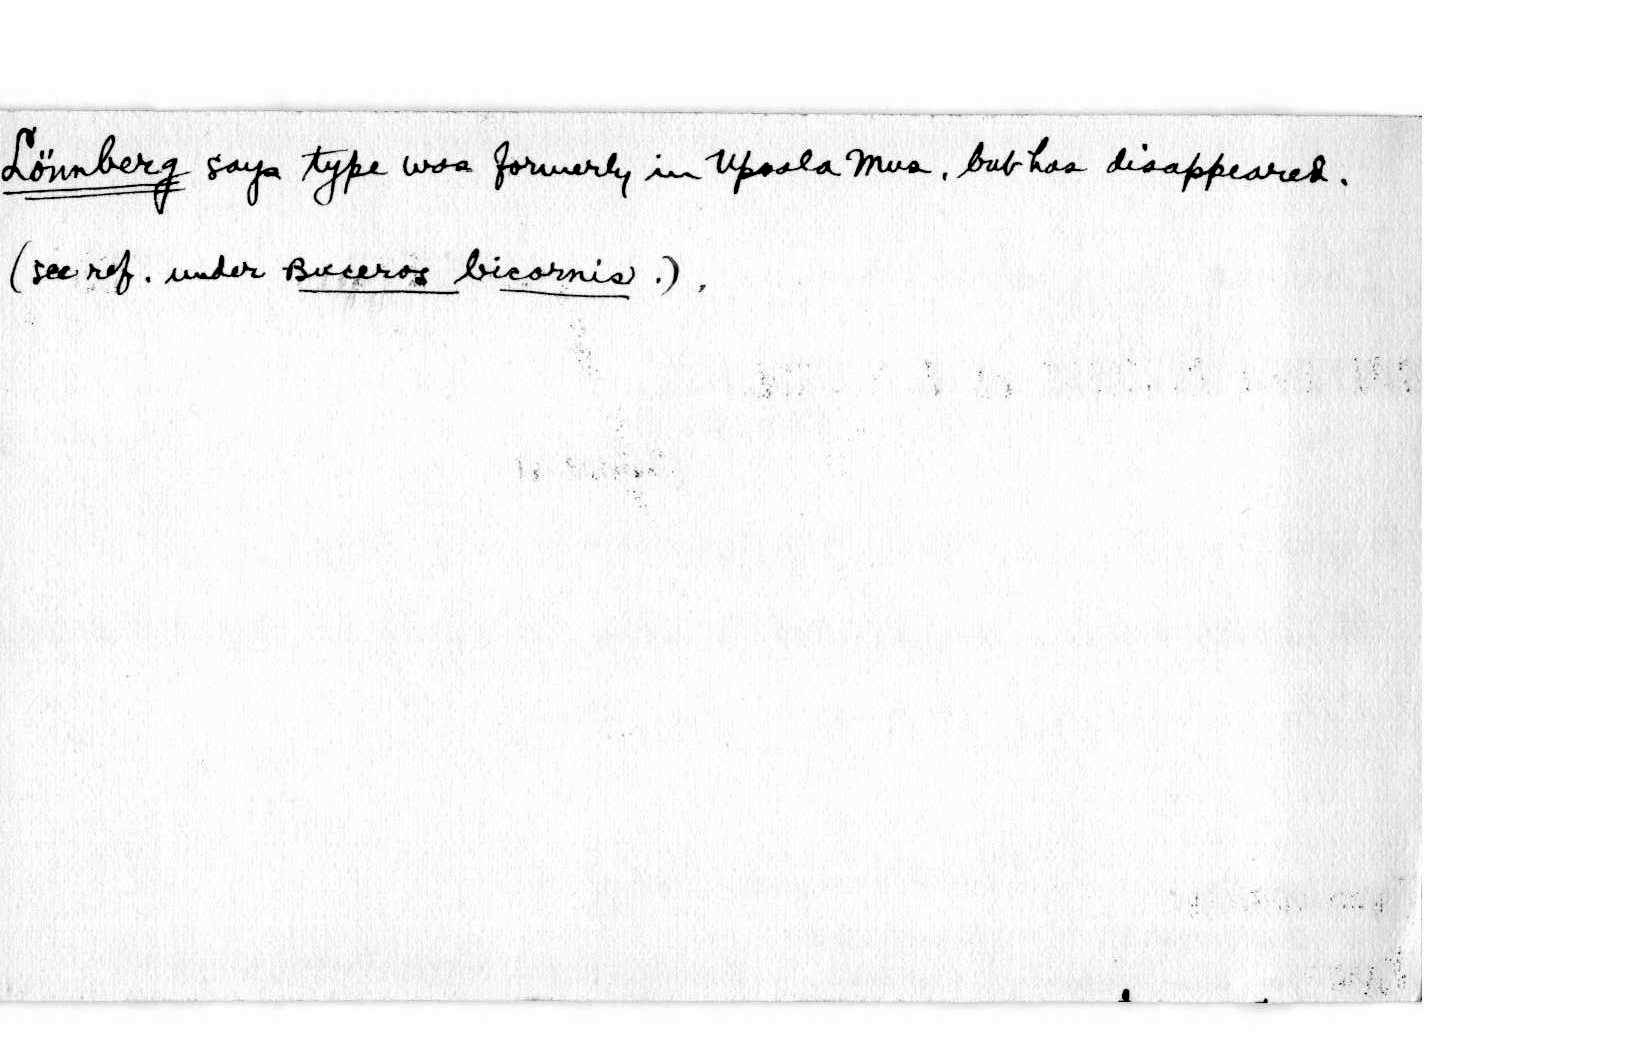 Lönnberg says type was formerly in Upsala Mus. but has disappeared.
(see ref. under Buceros bicornis.).